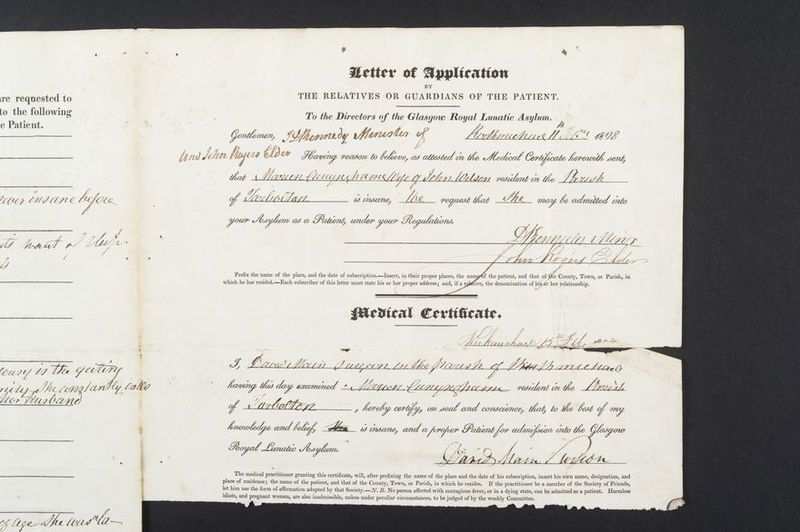 are requested to
to the following
e Patient.
never insane before
want of sleep
is the
she constantly calls
her husband
age she was
Letter of Application
BY
THE RELATIVES OR GUARDIANS OF THE PATIENT.
To the Directors of the Glasgow Royal Lunatic Asylum.
Gentlemen, Kennedy Minister of 11th 18
And John Rogers Elder Having reason to believe, as attested in the Medical Certificate herewith sent,
that Marion Cunynghame Wife of John Wilson resident in the Parish
of Tarbolton is insane, We request that She may be admitted into
your Asylum as a Patient, under your Regulations.
Kennedy Minr
John Rogers Elder
Prefix the name of the place, and the date of subscription.—Insert, in their proper places, the name of the patient, and that of the County, Town, or Parish, in
which he has resided.—Each subscriber of this letter must state his or her proper address; and, if a relative, the denomination of his or her relationship.
Medical Certificate.
I, David Main Surgeon in the parish of
having this day examined Marion Cunynghame resident in the Parish
of Tarbolton, hereby certify, on soul and conscience, that, to the best of my
knowledge and belief, She is insane, and a proper Patient for admission into the Glasgow
Royal Lunatic Asylum.
David Main Surgeon
The medical practitioner granting this certificate, will, after prefixing the name of the place and the date of his subscription, insert his own name, designation, and
place of residence; the name of the patient, and that of the County, Town, or Parish, in which he resides. If the practitioner be a member of the Society of Friends,
let him use the form of affirmation adopted by that Society.—N. B. No person affected with contagious fever, or in a dying state, can be admitted as a patient. Harmless
idiots, and pregnant women, are also inadmissible, unless under peculiar circumstances, to be judged of by the weekly Committee.